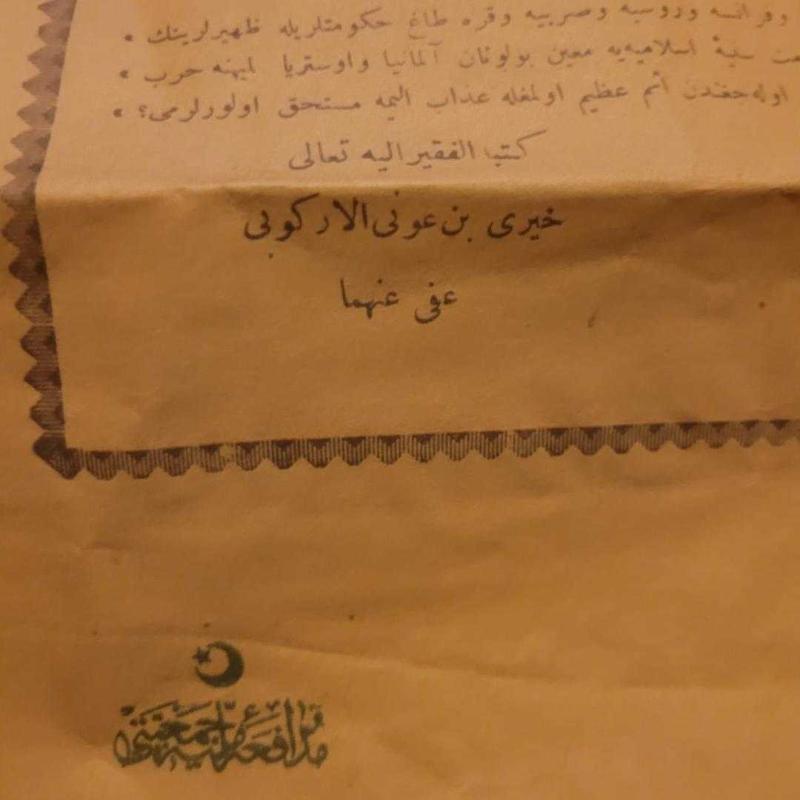 وفرانسه وروسیه وصربیه وقره طاغ حکومتلریله ظهیرلرینك
سنیهٔ اسلامیه‌یه معین بولونان آلمانیا واوستریا علیهنه حرب
اوله‌جغندن اثم عظیم اولمغله عذاب الیمه مستحق اولورلرمی؟
کتبه الفقیر الیه تعالی
خیری بن عونی الارکوبی
عفی عنهما
مدافعهٔ ملیه جمعیتی